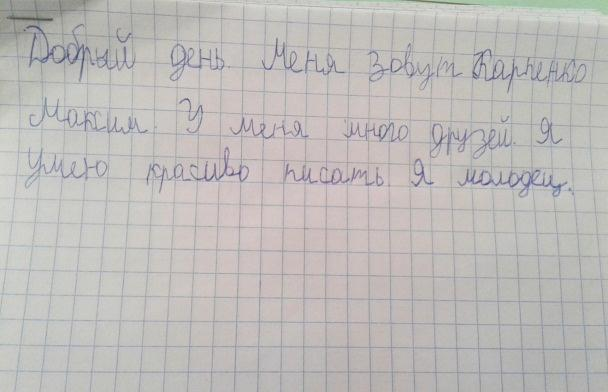 Добрый день. Меня зовут Карпенко
Максим. У меня много друзей. Я
умею красиво писать. Я молодец.